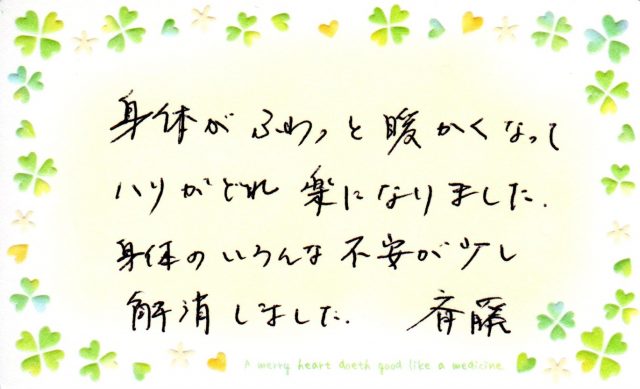 身体がふわっと暖かくなって
ハリがどれ 楽になりました.
身体のいろんな不安が少し
解消しました. 斉藤
A merry heart doeth good like a medicine.